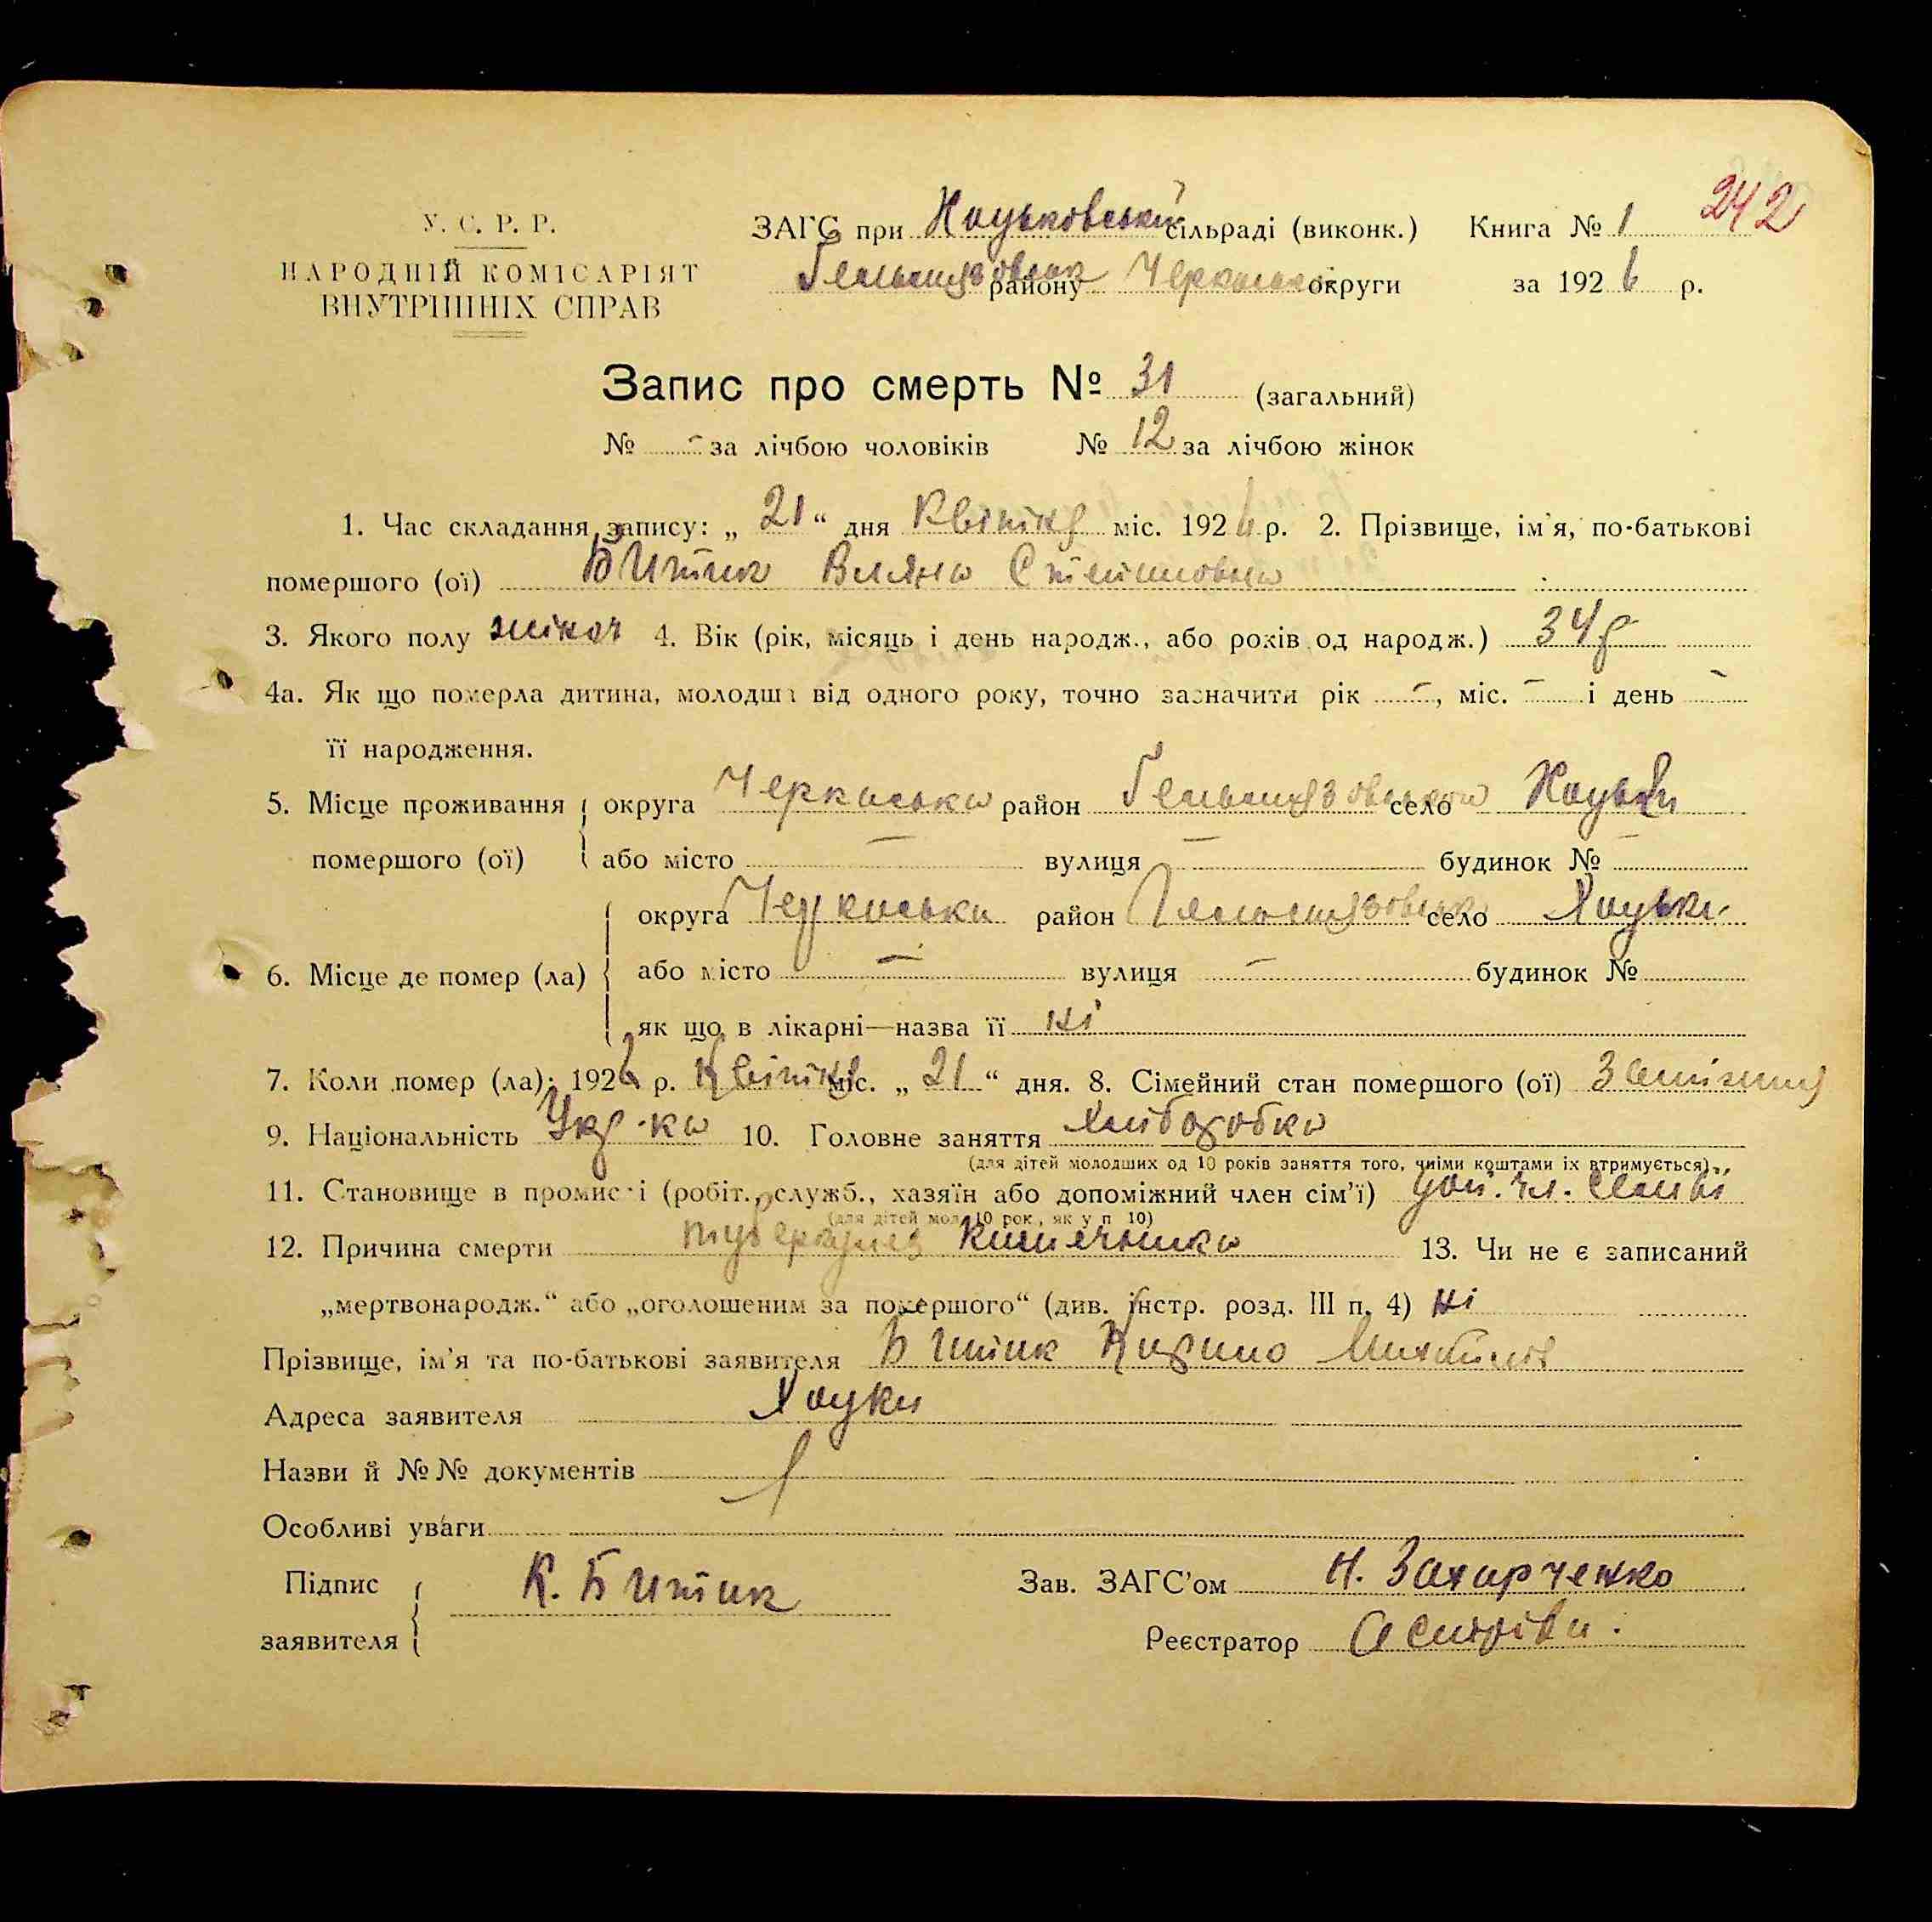 242
У. С. Р. Р.
НАРОДНІЙ КОМІСАРІЯТ
ВНУТРІШНІХ СПРАВ
ЗАГС при сільраді (виконк.) Книга № 1
району Черкаськ округи за 1926 р.
Запис про смерть № 31 (загальний)
№ - за лічбою чоловіків № 12 за лічбою жінок
1. Час складання запису: „ 21 “ дня Квітня міс. 1926 р. 2. Прізвище, ім'я, по-батькові
помершого (ої) Битик
3. Якого полу жіноч 4. Вік (рік, місяць і день народж., або років од народж.) 34 р
4а. Як що померла дитина, молодша від одного року, точно зазначити рік -, міс. - і день -
її народження.
5. Місце проживання округа Черкаська район село
помершого (ої) або місто — вулиця - будинок № -
округа Черкаська район село
6. Місце де помер (ла) або місто — вулиця - будинок №
як що в лікарні—назва її ні
7. Коли помер (ла): 1926 р. Квітня міс. „ 21 “ дня. 8. Сімейний стан помершого (ої) Замізжня
9. Національність Укр-ка 10. Головне заняття Хліборобка
(для дітей молодших од 10 років заняття того, чиїми коштами їх втримується)
11. Становище в промислі (робіт., служб., хазяїн або допоміжний член сім'ї) доп. чл. семьі
(для дітей мол. 10 рок., як у п 10)
12. Причина смерти туберкулез кишечника 13. Чи не є записаний
„мертвонародж.“ або „оголошеним за помершого“ (див. інстр. розд. III п. 4) ні
Прізвище, ім'я та по-батькові заявителя Битик Кирило
Адреса заявителя Хоцки
Назви й №№ документів
Особливі уваги
Підпис К. Битик Зав. ЗАГС'ом Н. Захарченко
заявителя Реєстратор